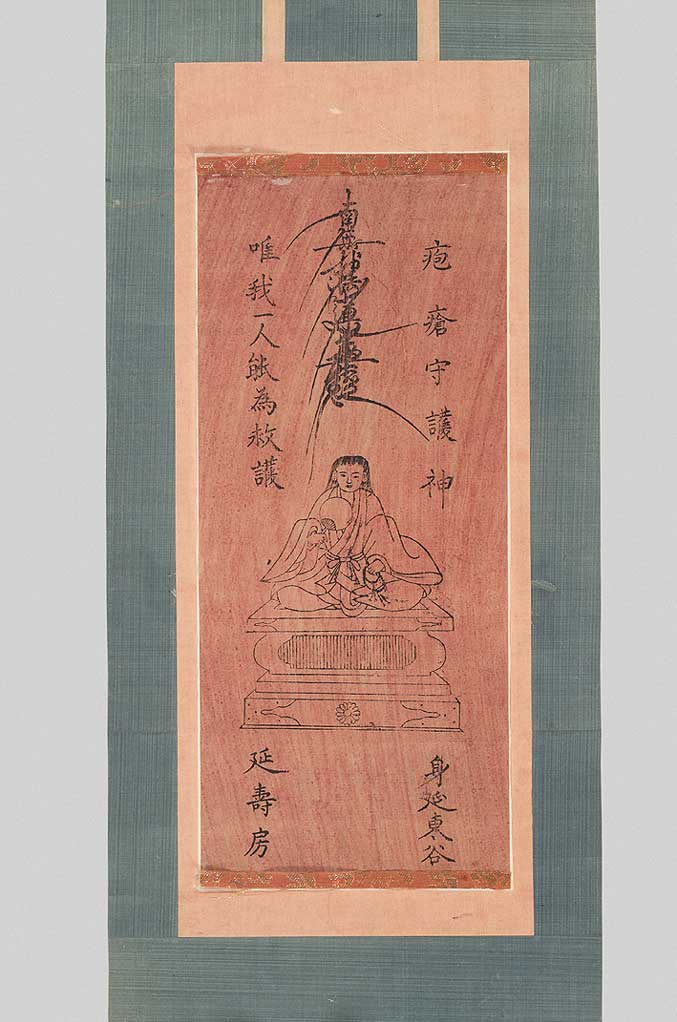 疱瘡守護神
南無妙法蓮華經
唯我一人能為救護
身延東谷
延壽房